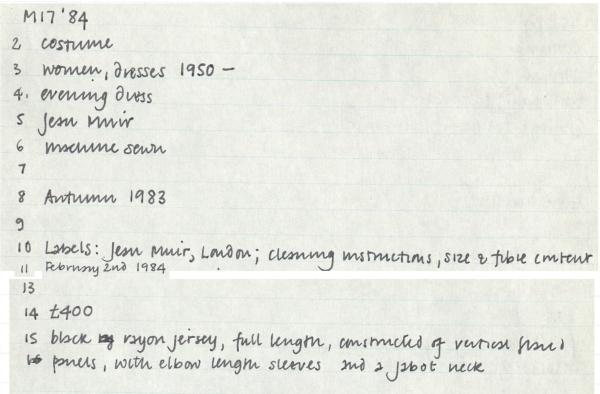 M17 '84
2 costume
3 women, dresses 1950 –
4. evening dress
5 Jean Muir
6 machine sewn
7
8 Autumn 1983
9
10 Labels: Jean Muir, London; cleaning instructions, size & fibre content
11 February 2nd 1984
13
14 £400
15 black rayon jersey, full length, constructed of vertical flared
panels, with elbow length sleeves and a jabot neck